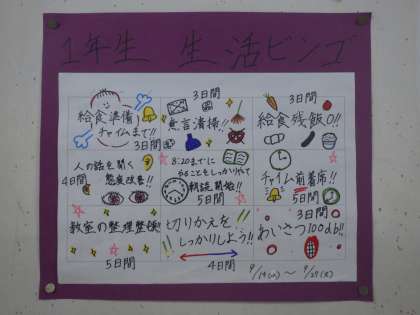 1年生 生活ビンゴ
給食準備
チャイムまで!!
3日間
3日間
無言清掃!!
3日間
給食残飯0!!
人の話を聞く
態度改善!!
4日間
8:20までに
やることをしっかりやって
朝読開始!!
5日間
チャイム前着席!!
5日間
教室の整理整頓!!
5日間
切りかえを
しっかりしよう!!
4日間
3日間
あいさつ100db!!